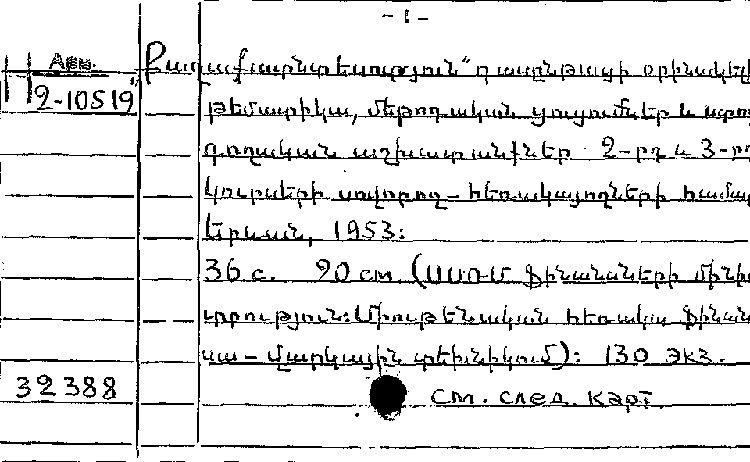 - 1 -
Арм.
2-10519
Քաղաքատնտեսություն" դասընթացի օրինակելի
թեմատիկա, մեթոդական ցուցումներ և ստու
գողական աշխատանքներ 2-րդ և 3-րդ
կուրսերի սովորող-հեռակայողների համար
Երևան, 1953:
36 с. 20 см (ՍՍՌՄ Ֆինանսների մինիս
տրություն: Միութենական հեռակա ֆինան
սա-վարկային տեխնիկում): 130 экз.
32388
см. след. карт.